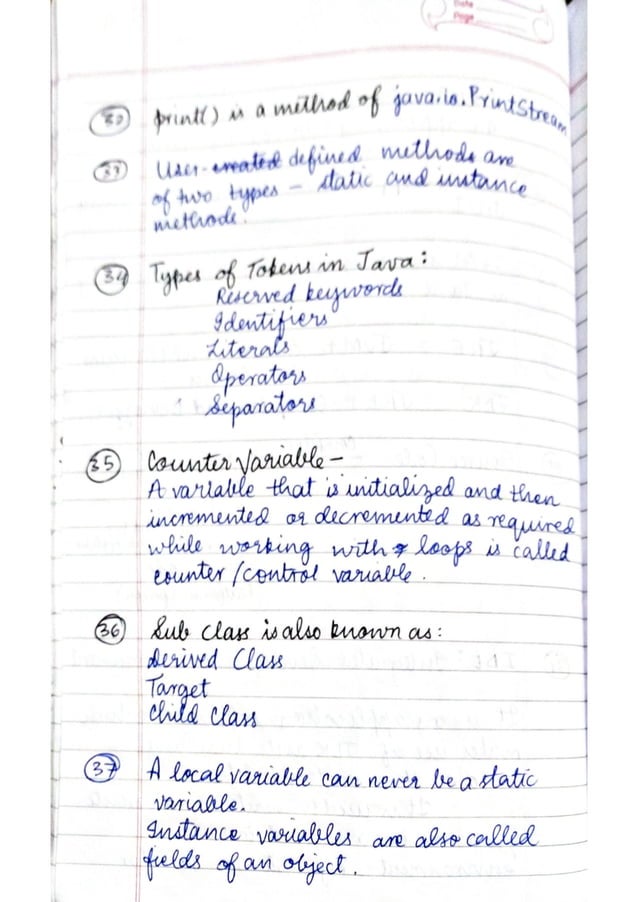 Date
Page
32 print() is a method of java.io.PrintStream
33 User-created defined methods are
of two types - static and instance
methods.
34 Types of Tokens in Java:
Reserved keywords
Identifiers
Literals
Operators
Separators
35 Counter Variable -
A variable that is initialized and then
incremented or decremented as required
while working with loops is called
counter/control variable.
36 Sub class is also known as:
Derived Class
Target
Child Class
37 A local variable can never be a static
variable.
Instance variables are also called
fields of an object.